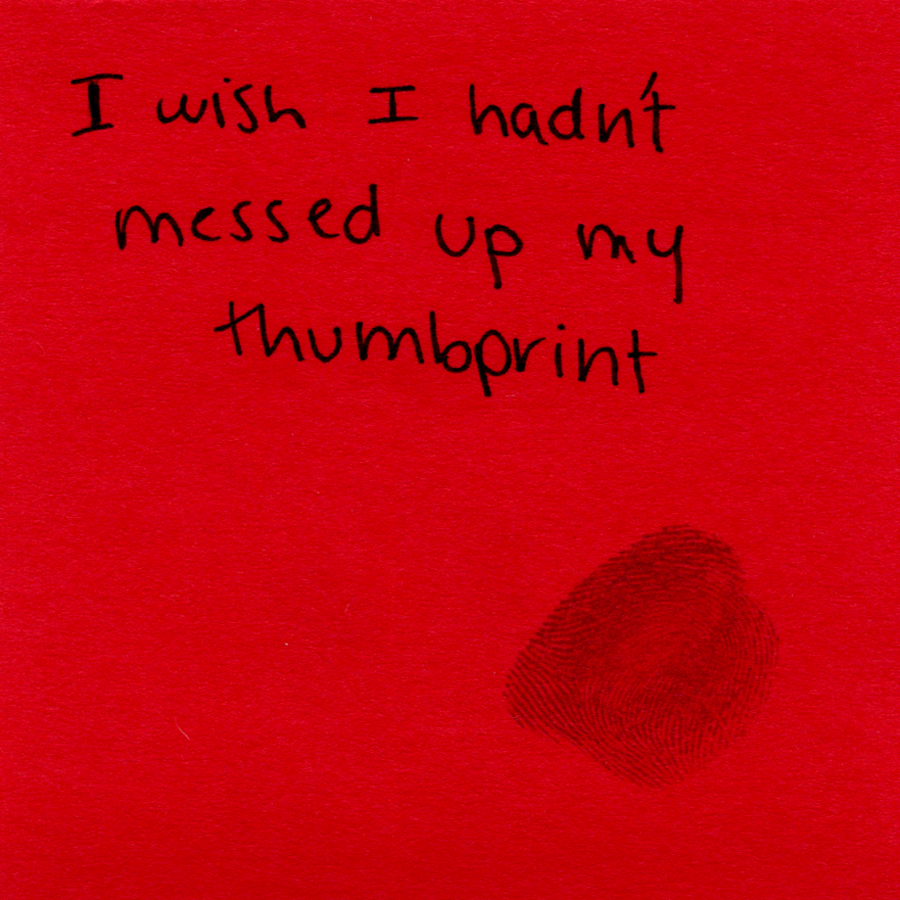 I wish I hadn't
messed up my
thumbprint